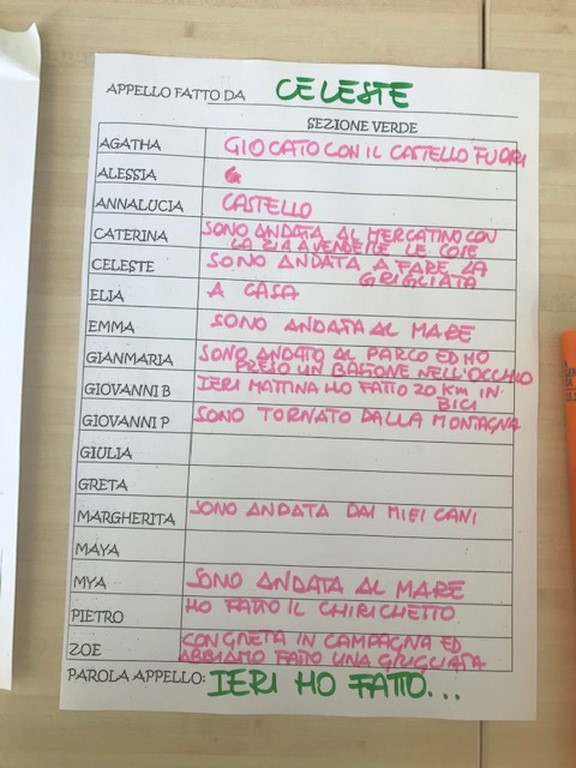 APPELLO FATTO DA CELESTE
SEZIONE VERDE
AGATHA GIOCATO CON IL CASTELLO FUORI
ALESSIA
ANNALUCIA CASTELLO
CATERINA SONO ANDATA AL MERCATINO CON
LA ZIA A VENDERE LE COSE
CELESTE SONO ANDATA A FARE LA
GRIGLIATA
ELIA A CASA
EMMA SONO ANDATA AL MARE
GIANMARIA SONO ANDATO AL PARCO ED HO
PRESO UN BASTONE NELL'OCCHIO
GIOVANNI B IERI MATTINA HO FATTO 20 Km IN
BICI
GIOVANNI P SONO TORNATO DALLA MONTAGNA
GIULIA
GRETA
MARGHERITA SONO ANDATA DAI MIEI CANI
MAYA
MYA SONO ANDATA AL MARE
PIETRO HO FATTO IL CHIRICHETTO
ZOE CON GRETA IN CAMPAGNA ED
ABBIAMO FATTO UNA GRIGLIATA
PAROLA APPELLO: IERI HO FATTO...